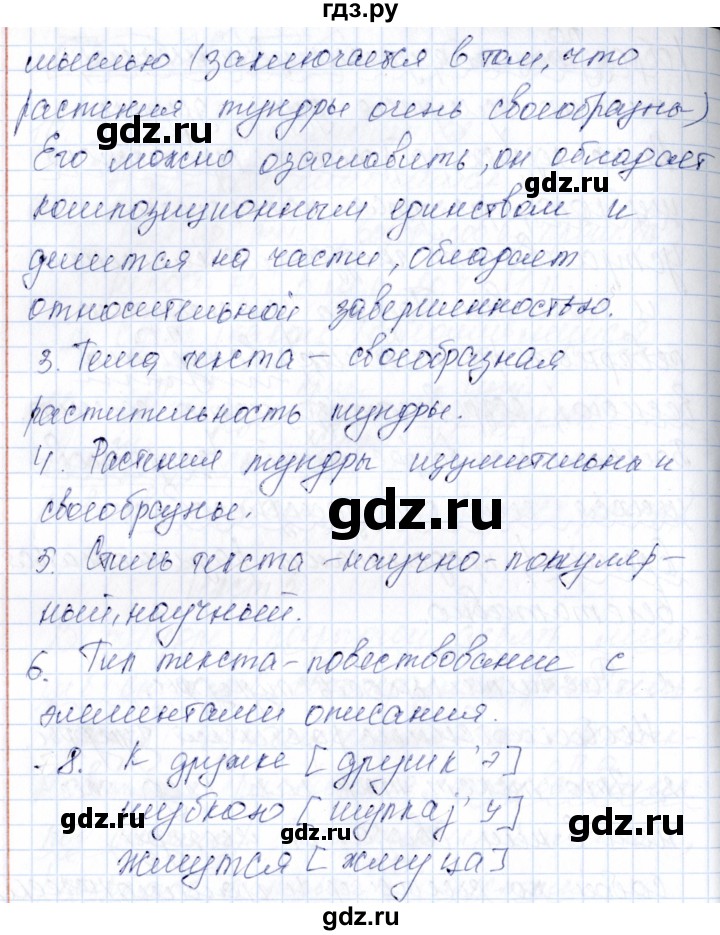 гдз.ру
мыслью (заключается в том, что
растения тундры очень своеобразны)
gdz.ru gdz.ru
Его можно озаглавить, он обладает
gdz.ru
композиционным единством и
делится на части, обладает
относительной завершенностью.
3. Тема текста – своеобразная
растительность тундры.
4. Растения тундры изумительны и
своеобразны.
gdz.ru
5. Стиль текста – научно-популяр-
ный, научный.
6. Тип текста – повествование с
элементами описания.
8. К дружке [друшк'э]
gdz.ru gdz.ru
шубкою [шупкаj'у]
жмутся [жмуца]
gdz.ru